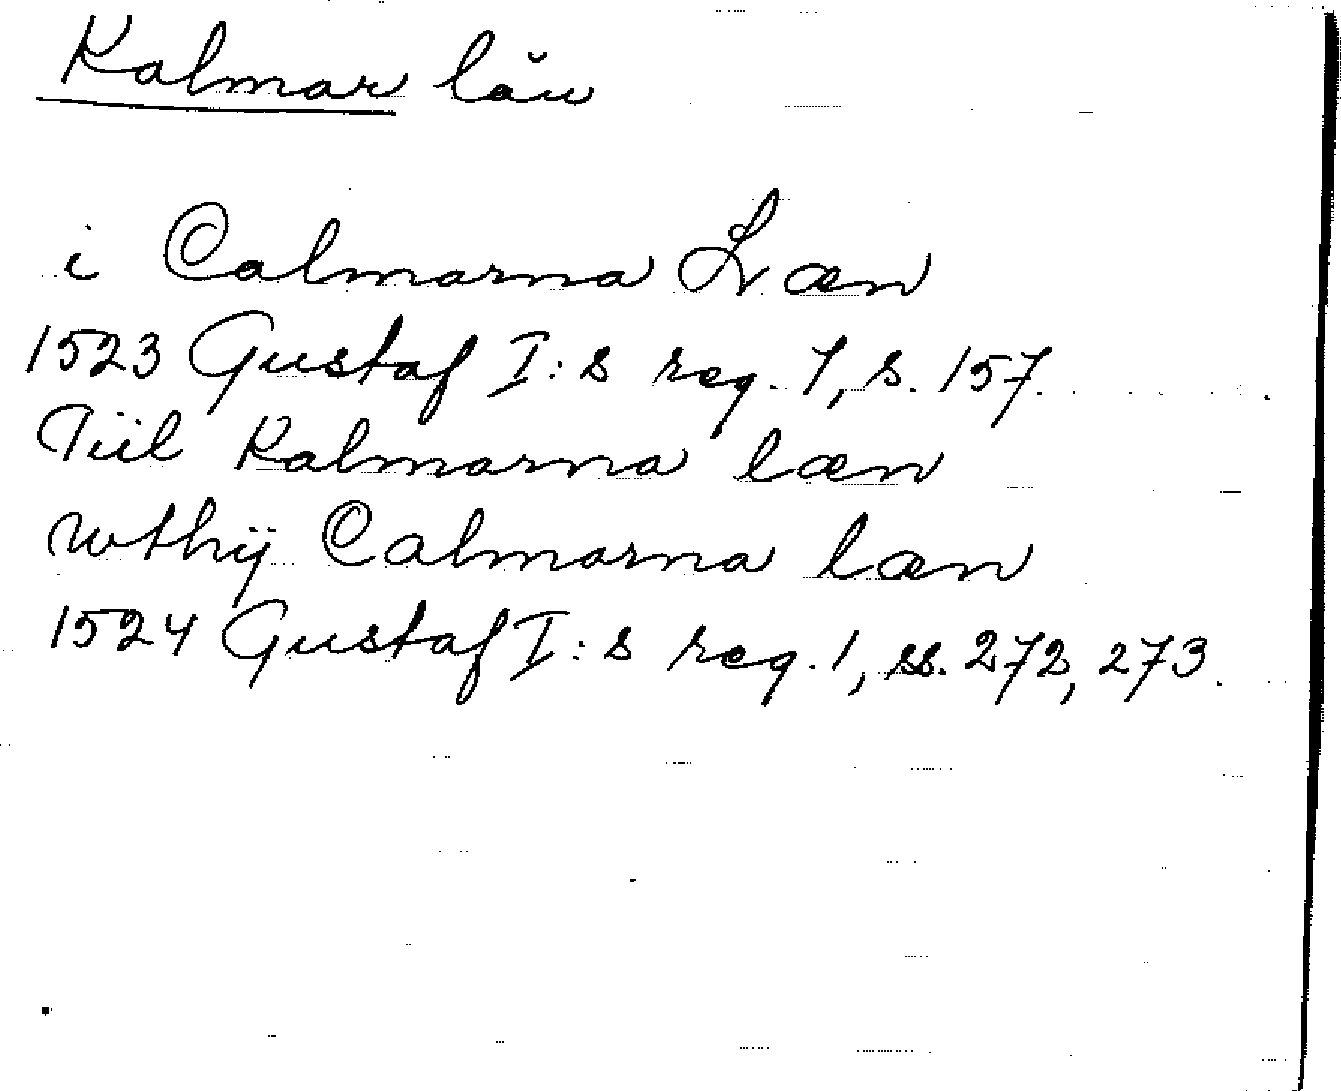 Kalmar län
i Calmarna Læn
1523 Gustaf I:s reg. 1, s. 157.
Tiil Kalmarna læn
wthij Calmarna læn
1524 Gustaf I:s reg. 1, ss. 272, 273.